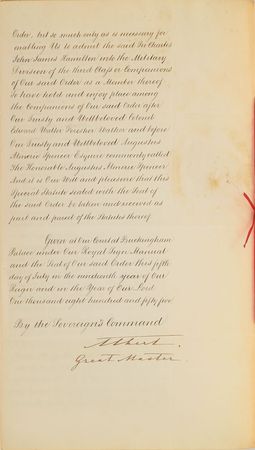 Order, but so much only as is necessary for
enabling Us to admit the said Sir Charles
John James Hamilton into the Military
Division of the third Class or Companions
of Our said Order as a Member thereof
to have hold and enjoy place among
the Companions of Our said Order after
Our Trusty and Wellbeloved Colonel
Edward Walter Forester Walker and before
Our Trusty and Wellbeloved Augustus
Almeric Spencer Esquire commonly called
The Honorable Augustus Almeric Spencer
And it is Our Will and pleasure that this
Special Statute sealed with the Seal of
the said Order be taken and received as
part and parcel of the Statutes thereof.
Given at Our Court at Buckingham
Palace under Our Royal Sign Manual
and the Seal of Our said Order this fifth
day of July in the nineteenth year of Our
Reign and in the Year of Our Lord
One thousand eight hundred and fifty five
By the Sovereign's Command
Albert.
Great Master.